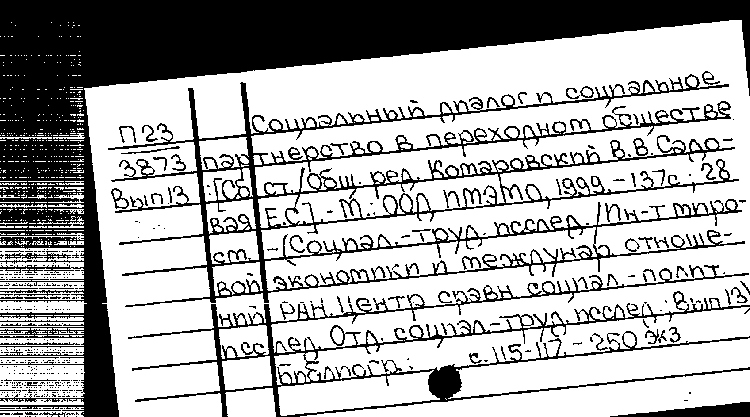 П23
3873
Вып13
Социальный диалог и социальное
партнерство в переходном обществе
:[Сб. ст./Общ. ред. Комаровский В.В. Садо-
вая Е.С.]. - М.: ООД ИМЭМО, 1999. - 137с.; 28
см. - (Социал.-труд. исслед. /Ин-т миро-
вой экономики и междунар отноше-
ний РАН. Центр сравн социал.-полит.
исслед. Отд. социал-труд. исслед.; Вып 13)
Библиогр.: с. 115-117. - 250 экз.